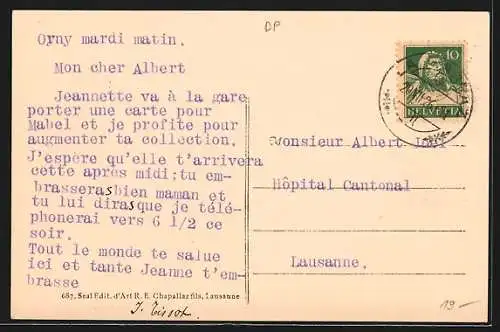 DP
Orny mardi matin.
Mon cher Albert
Jeannette va à la gare
porter une carte pour
Mabel et je profite pour
augmenter ta collection.
J'espère qu'elle t'arrivera
cette après midi;tu em-
brasserasbien maman et
tu lui dirasque je télé-
phonerai vers 6 1/2 ce
soir.
Tout le monde te salue
ici et tante Jeanne t'em-
brasse
687. Seal Edit. d'Art R. E. Chapallaz fils, Lausanne
J. Tissot.
10
HELVETIA
Monsieur Albert
Hôpital Cantonal
Lausanne.
19-